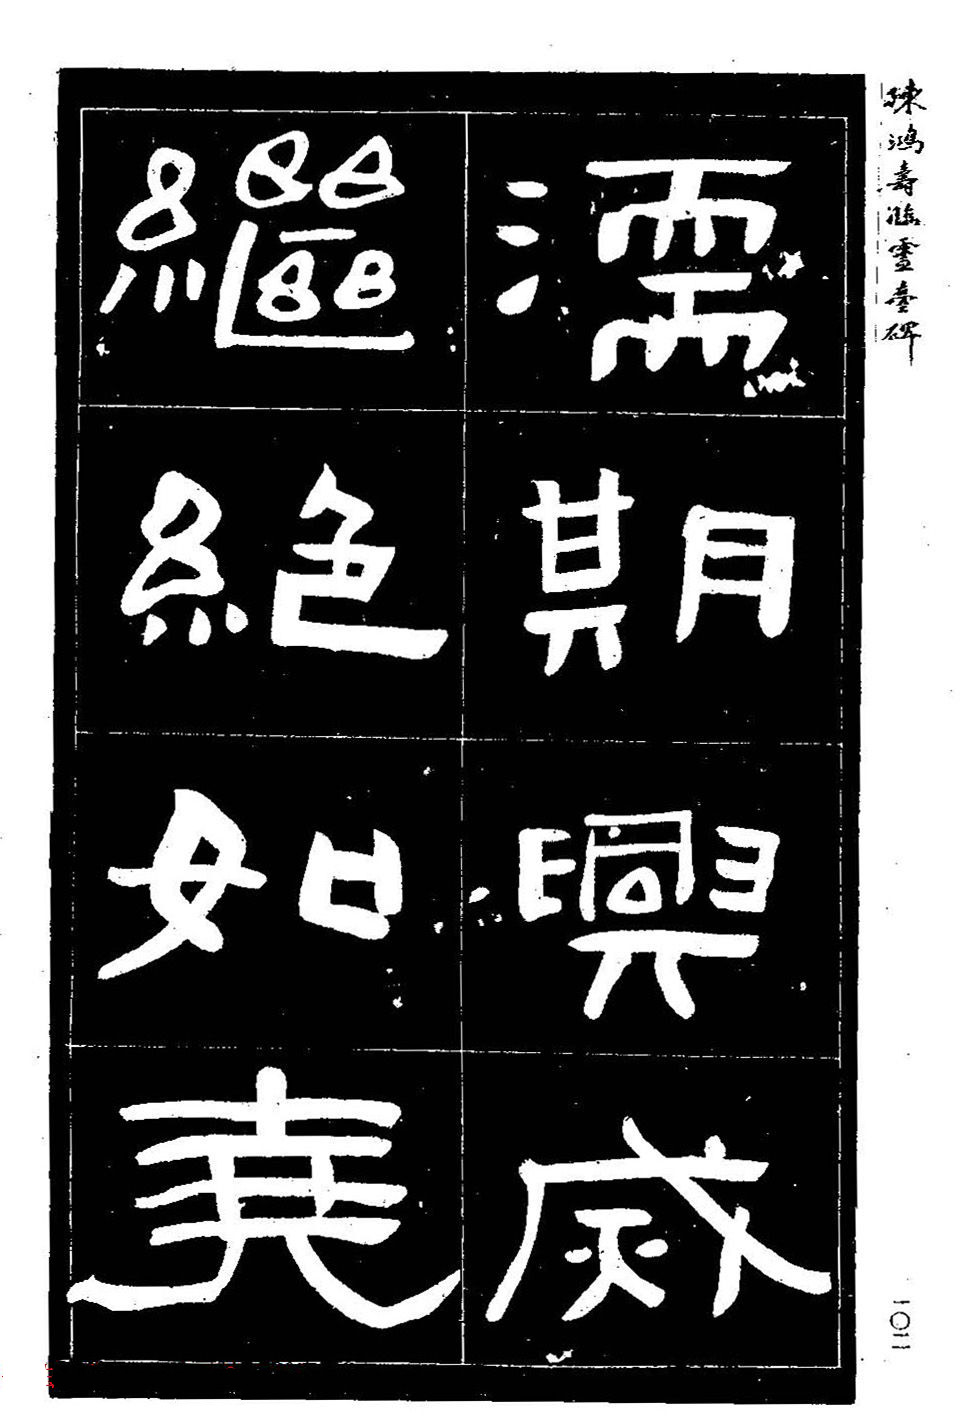 陳鴻壽臨靈臺碑
濡期興滅
繼絕如堯
一〇二